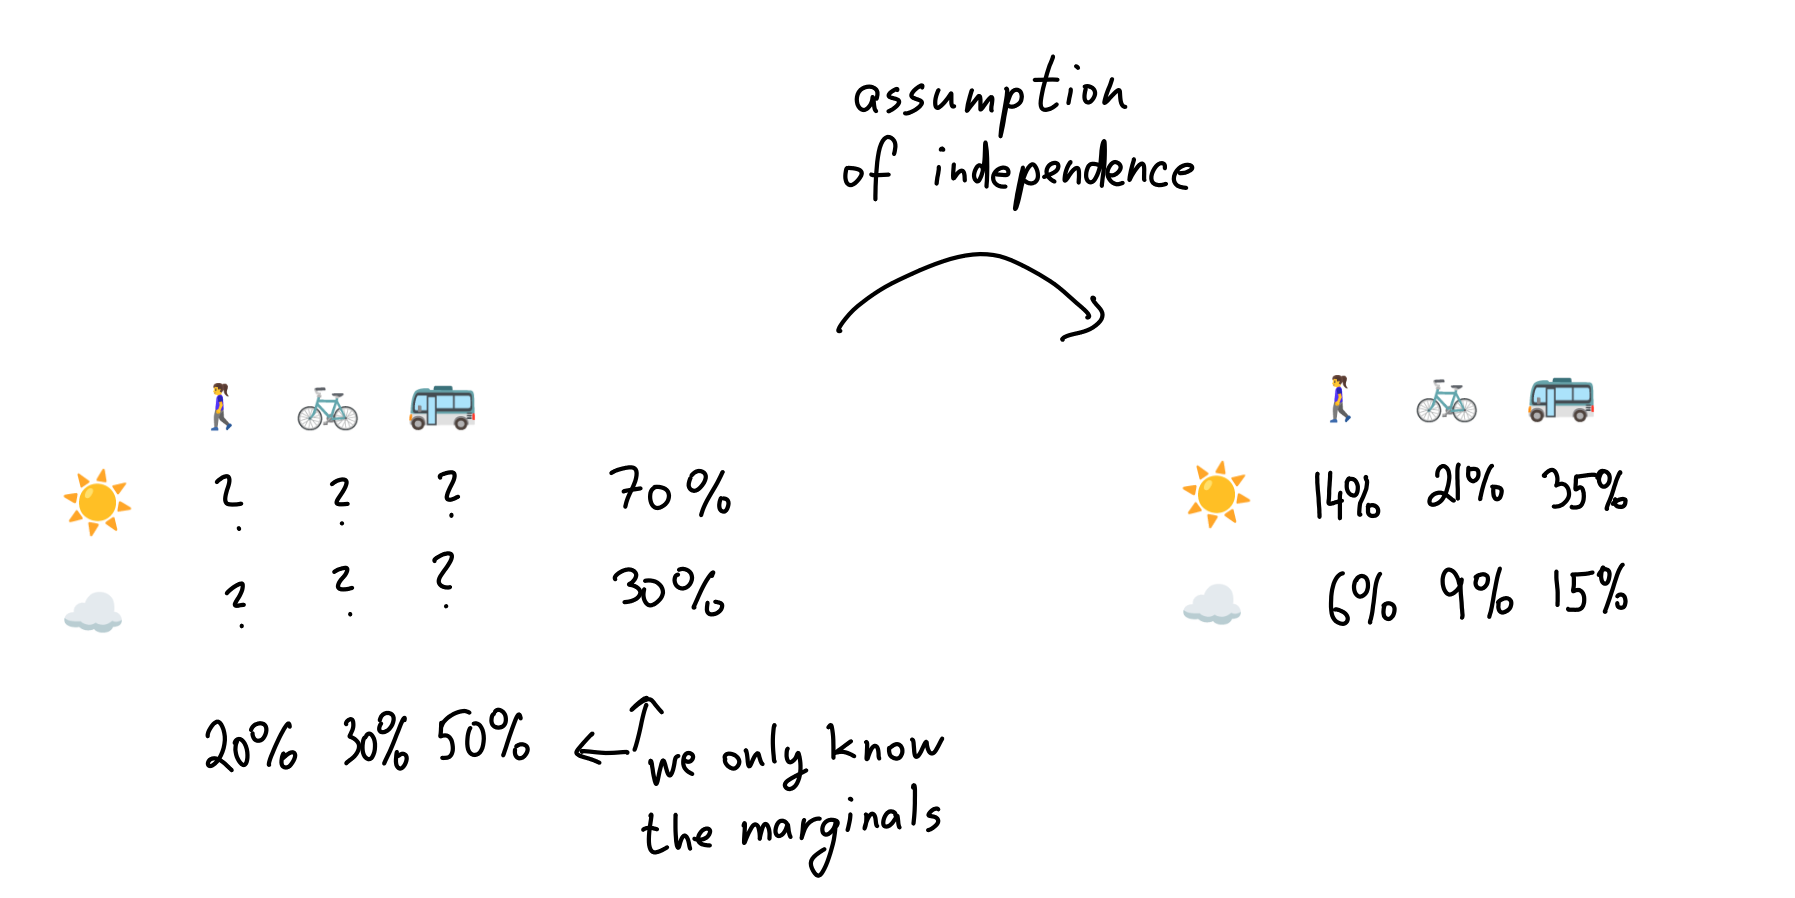 assumption
of independence
? ? ? 70%
? ? ? 30%
20% 30% 50%
we only know
the marginals
14% 21% 35%
6% 9% 15%